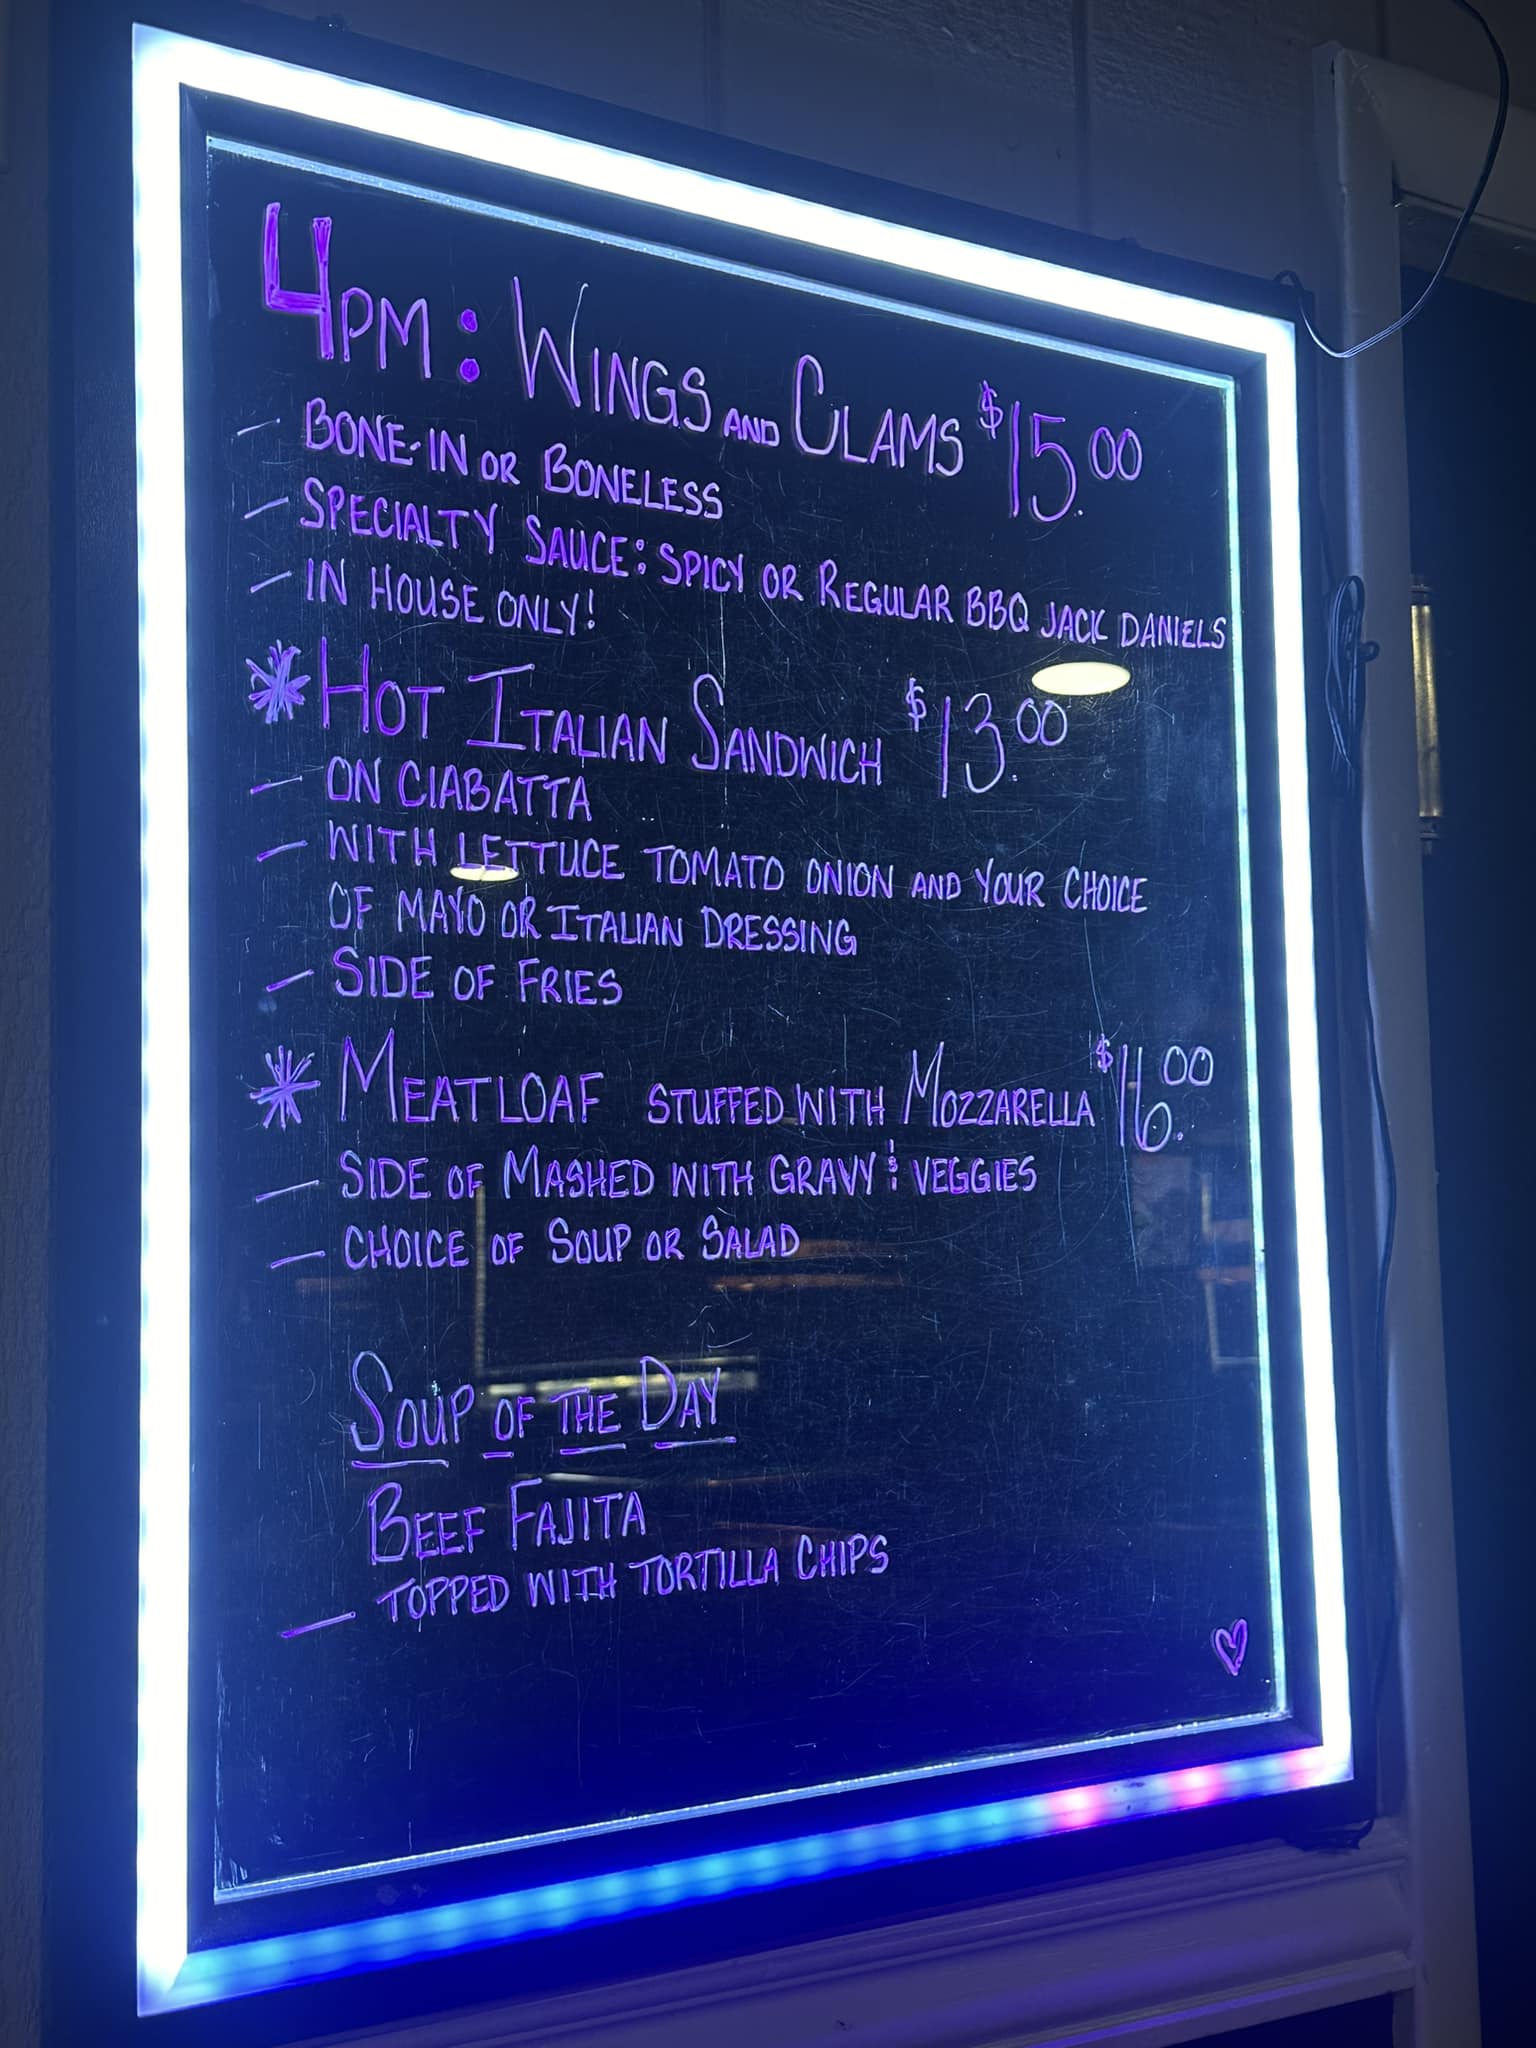 4PM: WINGS AND CLAMS $15.00
- BONE-IN OR BONELESS
- SPECIALTY SAUCE: SPICY OR REGULAR BBQ JACK DANIELS
- IN HOUSE ONLY!
* HOT ITALIAN SANDWICH $13.00
- ON CIABATTA
- WITH LETTUCE TOMATO ONION AND YOUR CHOICE
OF MAYO OR ITALIAN DRESSING
- SIDE OF FRIES
* MEATLOAF STUFFED WITH MOZZARELLA $16.00
- SIDE OF MASHED WITH GRAVY & VEGGIES
- CHOICE OF SOUP OR SALAD
SOUP OF THE DAY
BEEF FAJITA
- TOPPED WITH TORTILLA CHIPS